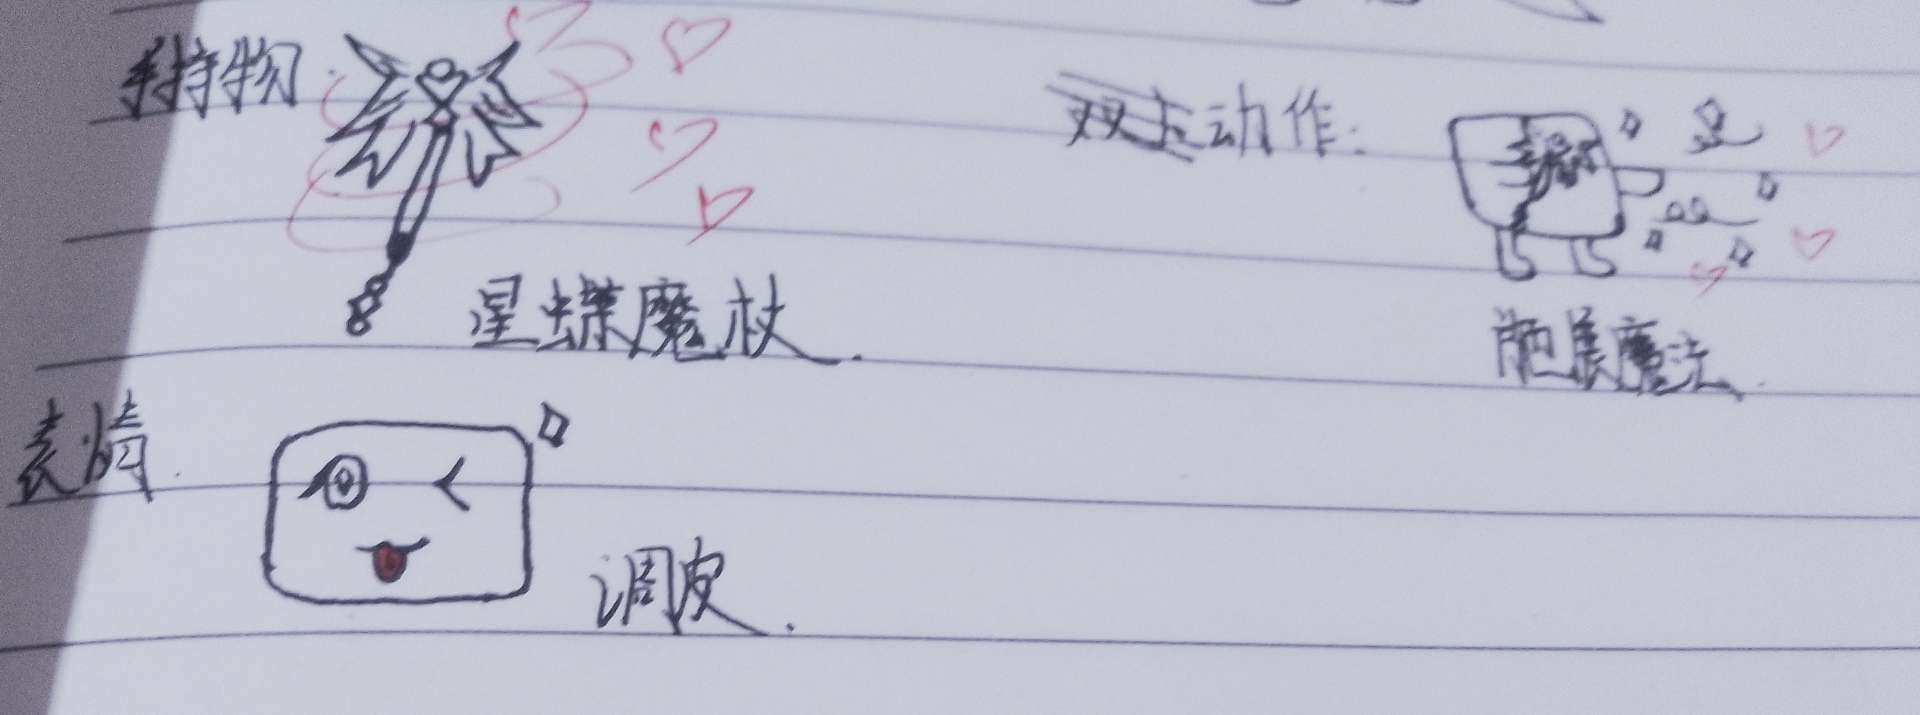 手持物
动作:
星蝶魔杖.
施展魔法.
表情.
调皮.